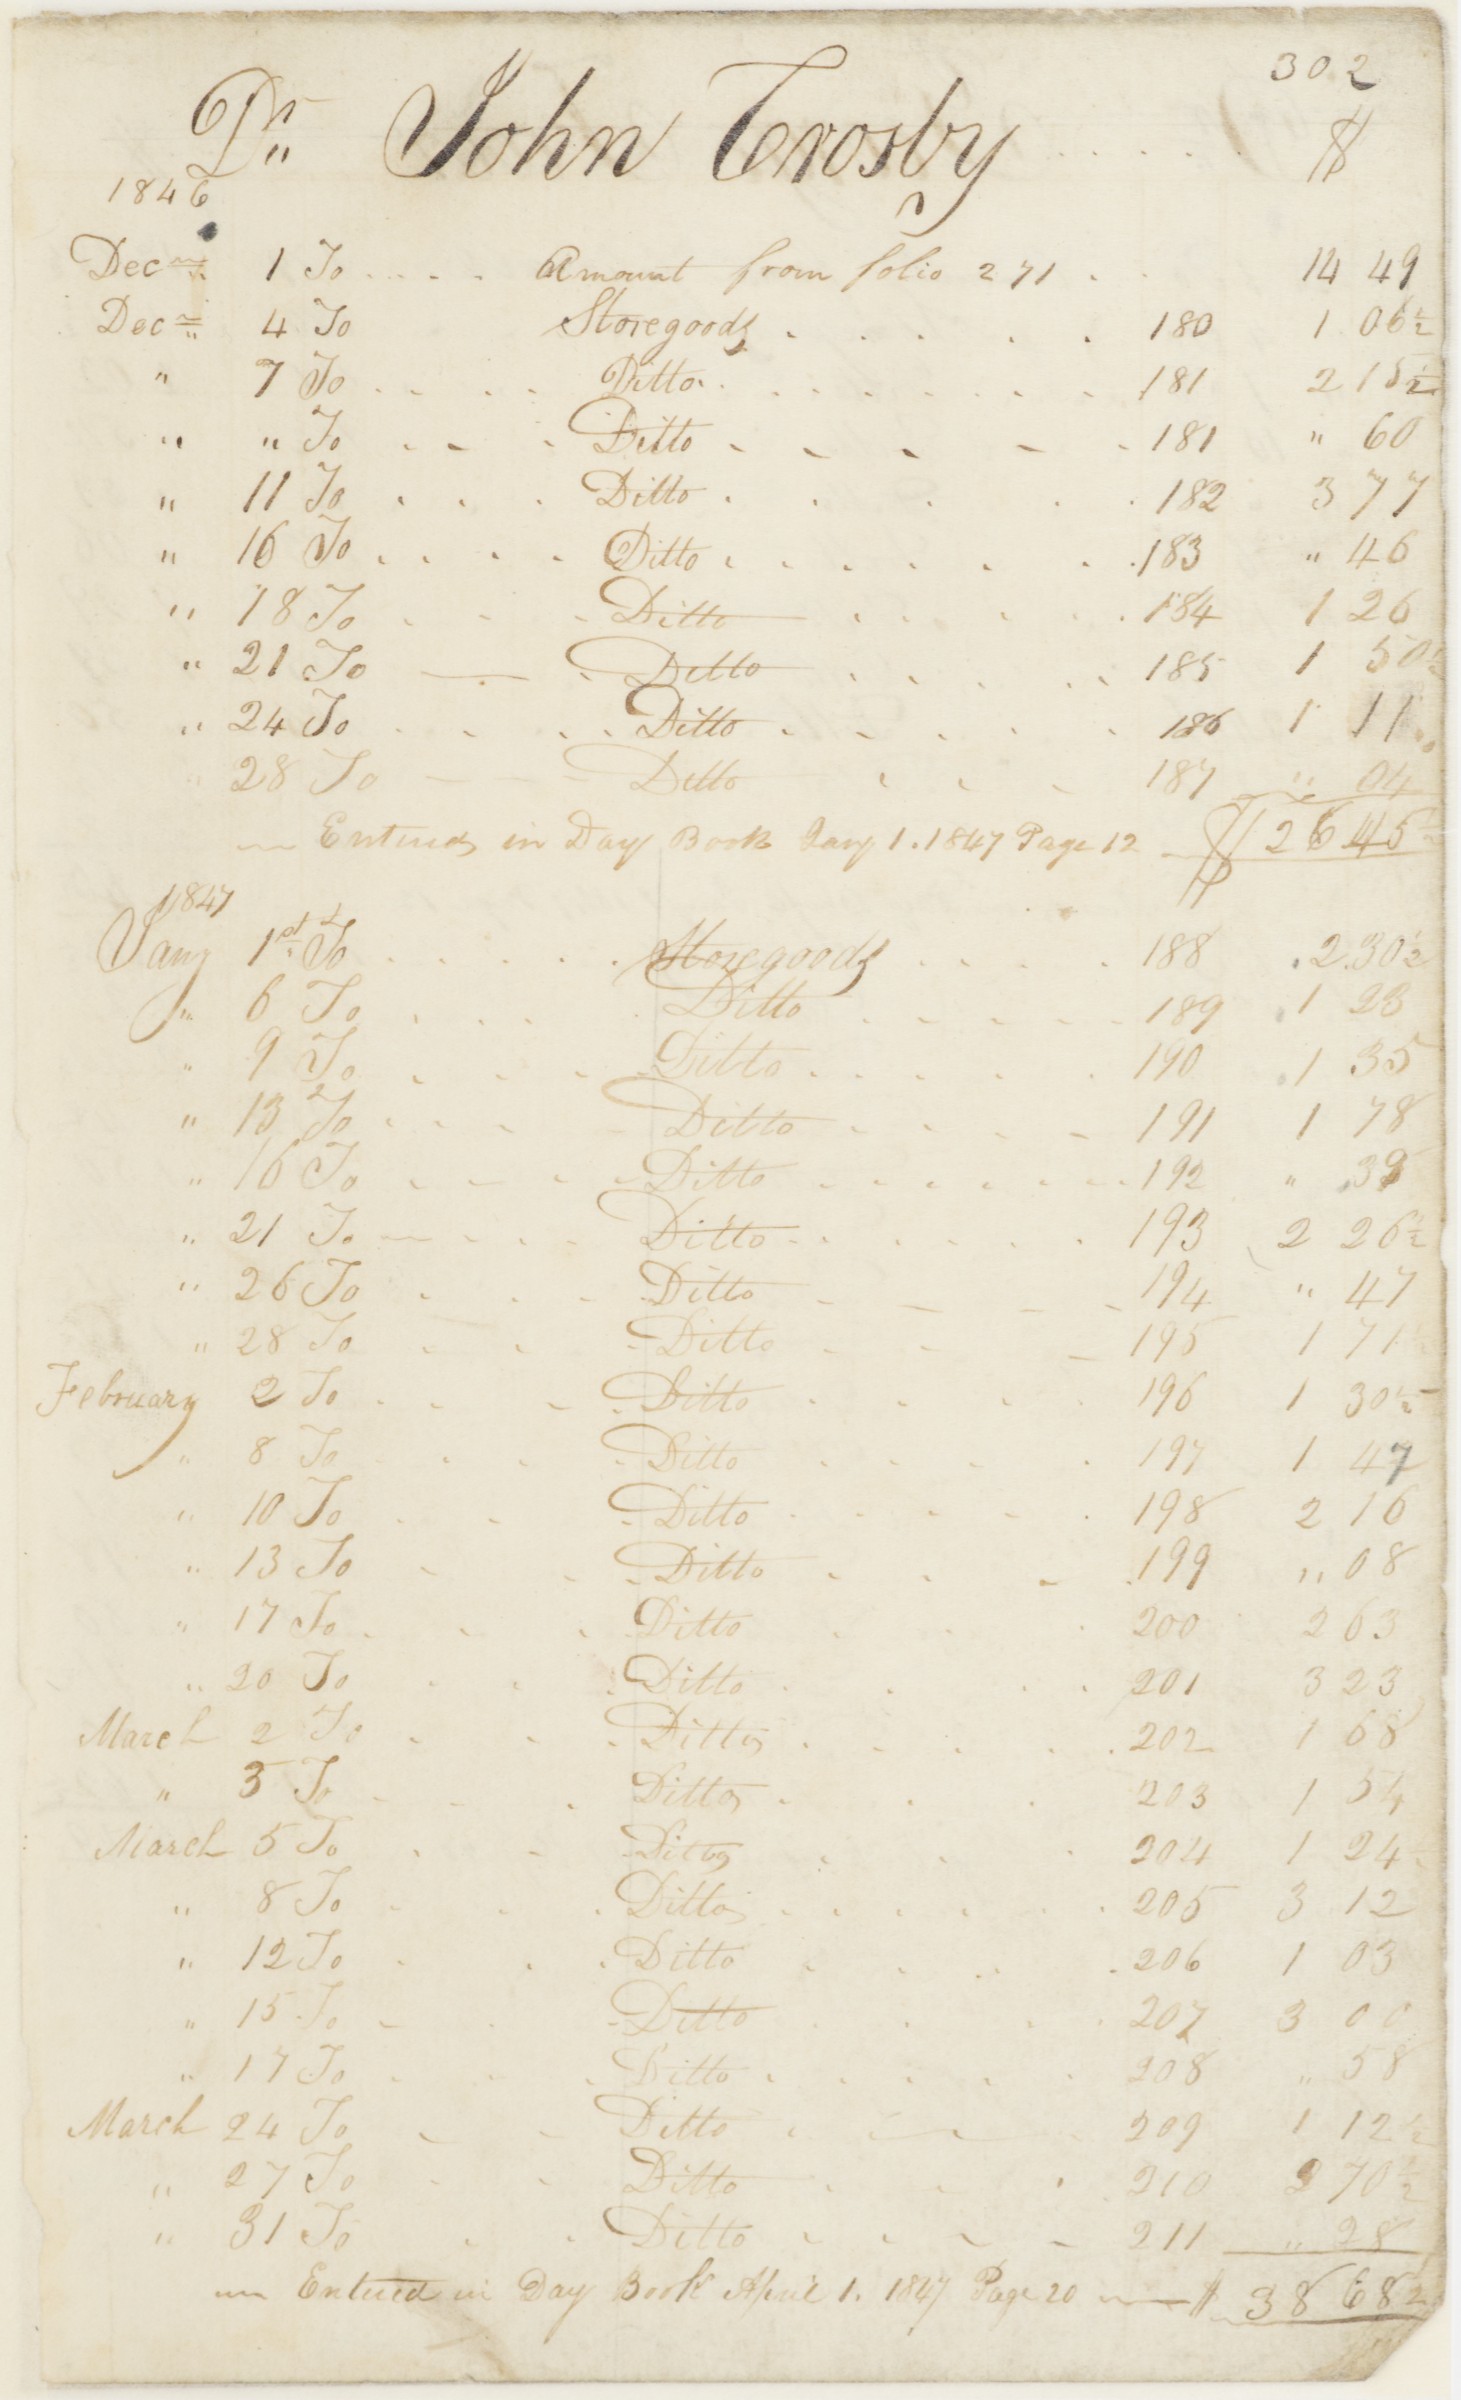 302
Dr John Crosby $
1846
Decm 1 To Amount from folio 271 14 49
Decm 4 To Storegoods 180 1 06½
" 7 To Ditto 181 2 15½
" " To Ditto 181 " 60
" 11 To Ditto 182 3 77
" 16 To Ditto 183 " 46
" 18 To Ditto 184 1 26
" 21 To Ditto 185 1 50½
" 24 To Ditto 186 1 11
" 28 To Ditto 187 " 04
Entered in Day Book Jany 1. 1847 Page 12 $ 26 45½
1847
Jany 1st To Storegoods 188 2.30½
" 6 To Ditto 189 1 23
" 9 To Ditto 190 1 35
" 13 To Ditto 191 1 78
" 16 To Ditto 192 " 39
" 21 To Ditto 193 2 26½
" 26 To Ditto 194 " 47
" 28 To Ditto 195 1 71½
February 2 To Ditto 196 1 30½
" 8 To Ditto 197 1 47
" 10 To Ditto 198 2 16
" 13 To Ditto 199 " 08
" 17 To Ditto 200 2 63
" 20 To Ditto 201 3 23
March 2 To Ditto 202 1 68
" 3 To Ditto 203 1 54
March 5 To Ditto 204 1 24
" 8 To Ditto 205 3 12
" 12 To Ditto 206 1 03
" 15 To Ditto 207 3 00
" 17 To Ditto 208 " 58
March 24 To Ditto 209 1 12½
" 27 To Ditto 210 2 70½
" 31 To Ditto 211 " 28
Entered in Day Book April 1. 1847 Page 20 $ 38 68½